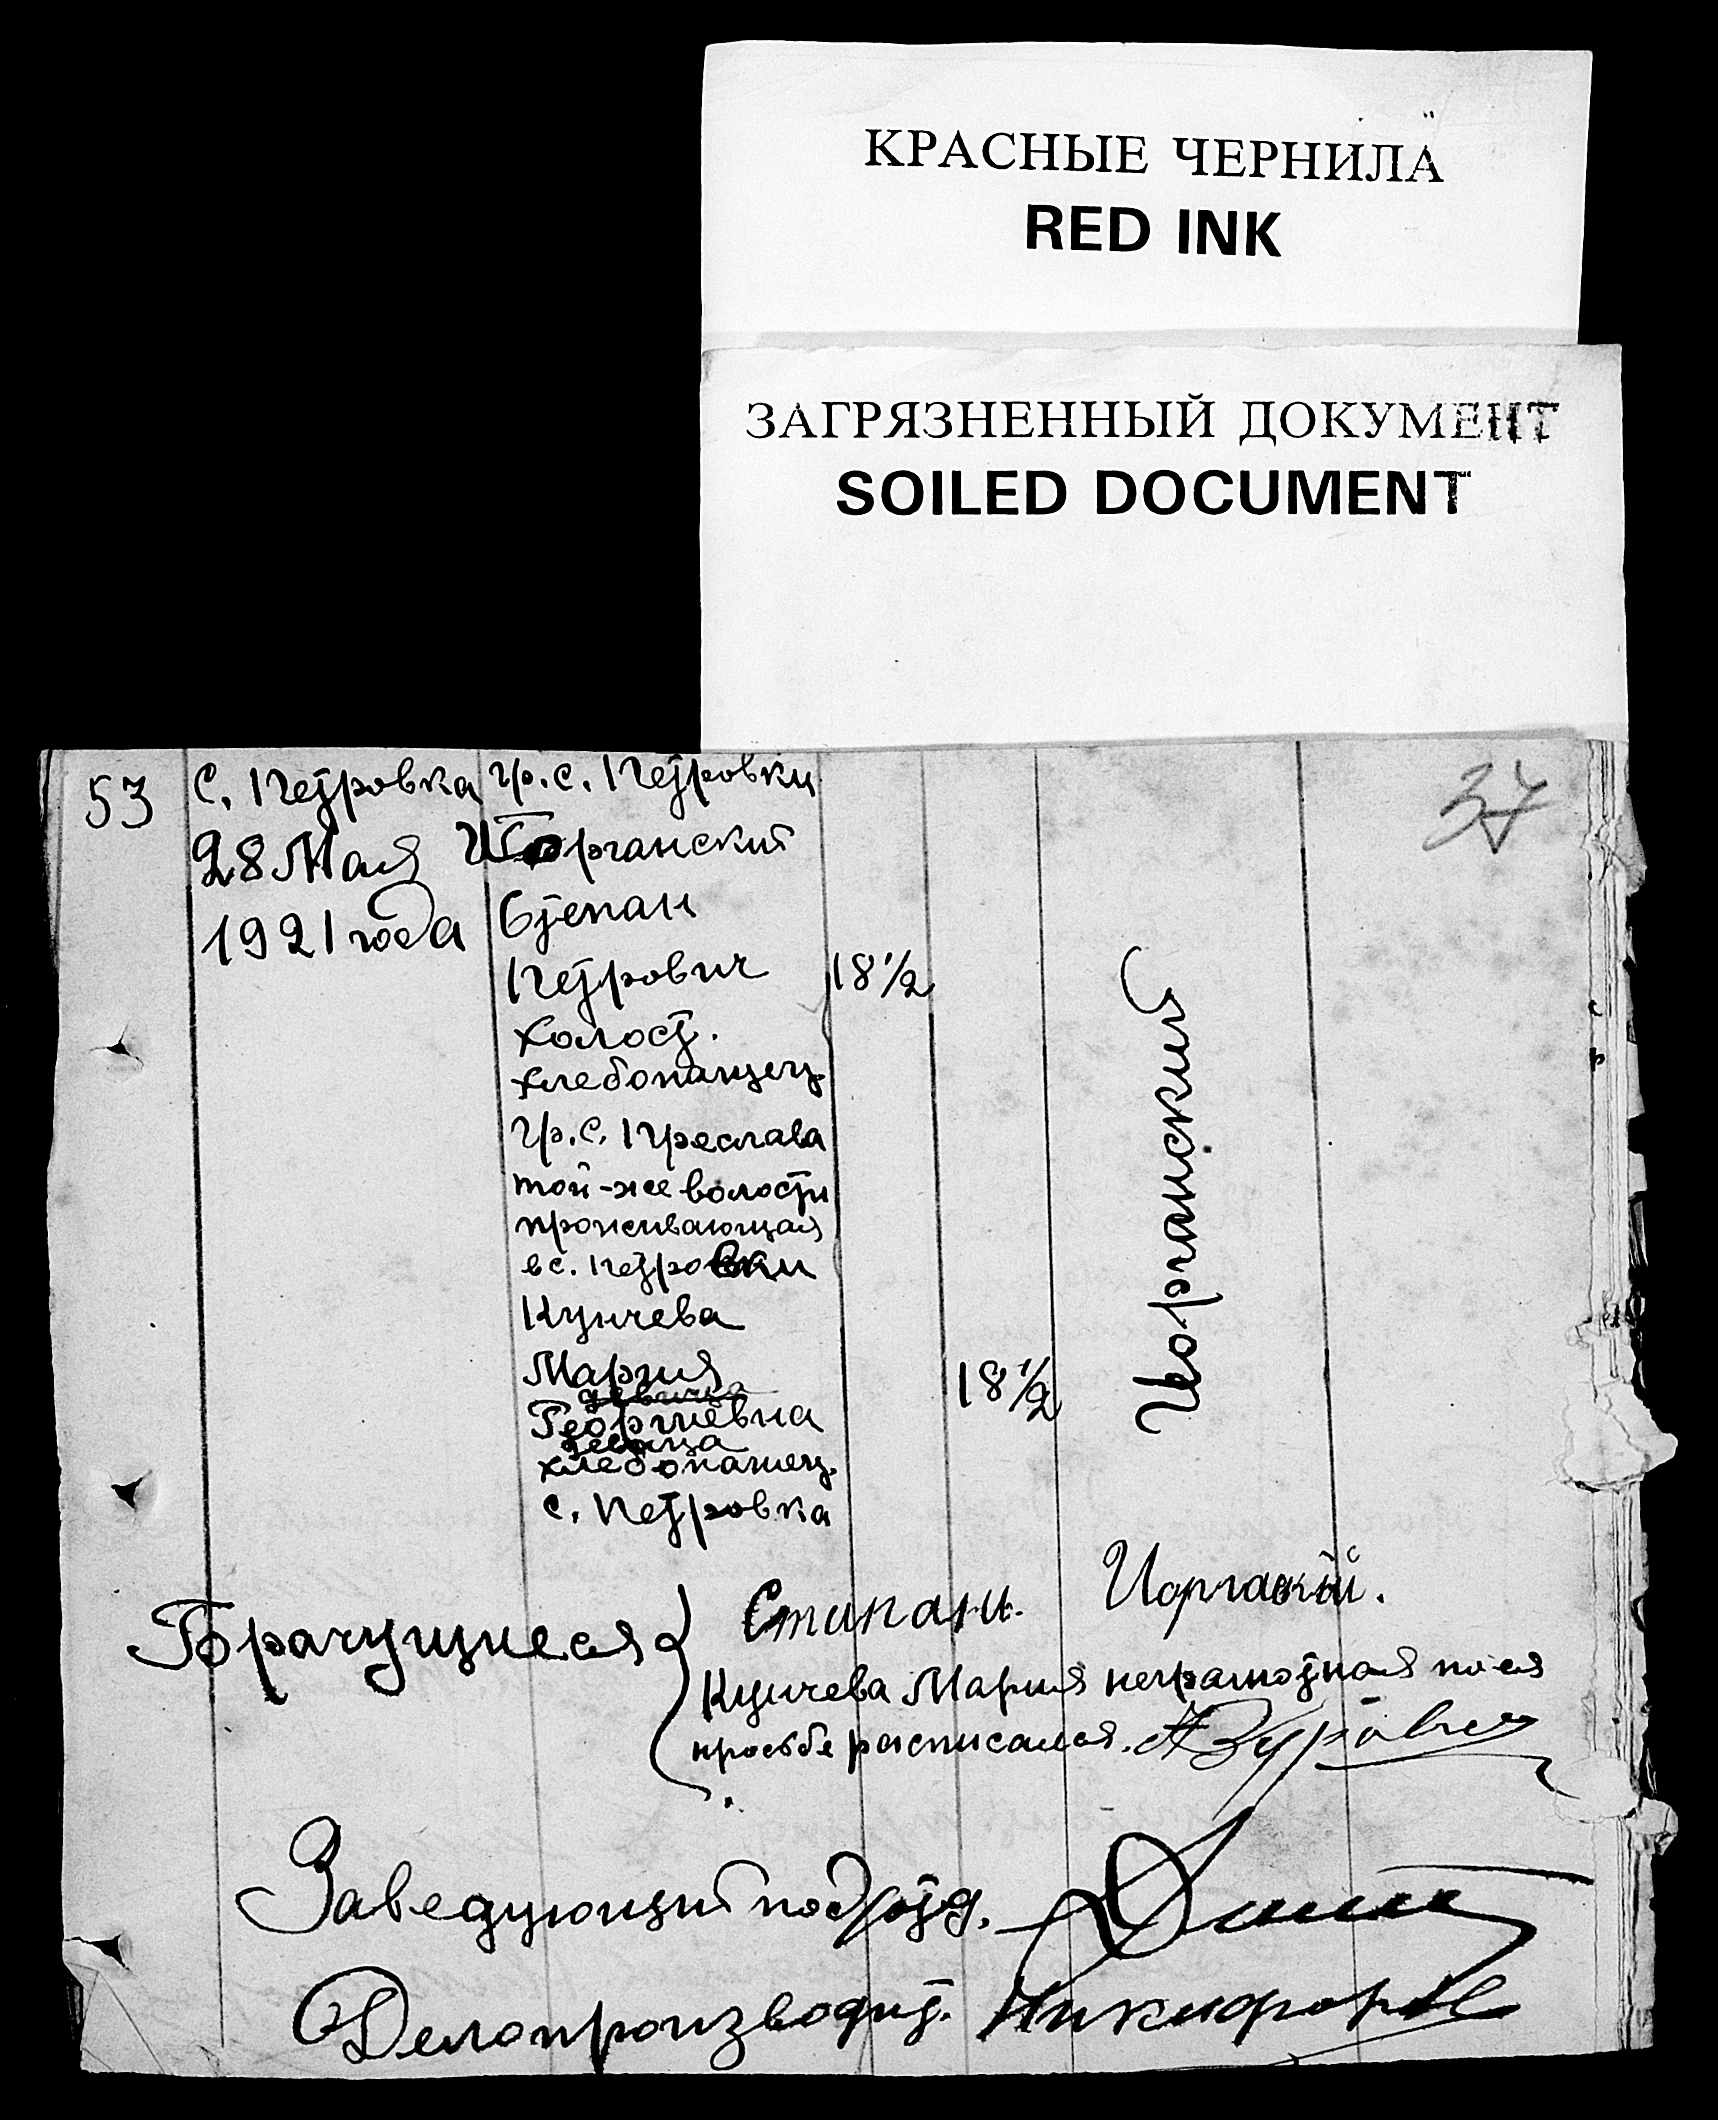 КРАСНЫЕ ЧЕРНИЛА
RED INK
ЗАГРЯЗНЕННЫЙ ДОКУМЕНТ
SOILED DOCUMENT
37
53
с. Петровка
28 Мая
1921 года
гр. с. Петровки
Иорганский
Степан
Петрович
18 1/2
холост.
хлебопашец
гр. с. Преслава
той-же волости
проживающая
в с. Петровки
Кунчева
Мария
18 1/2
девица
Георгиевна
девица
хлебопашец.
с. Петровка
Иорганский
Брачущиеся
Стипан. Иоргаский.
Кунчева Мария неграмотная по ея
просьбе расписался.
Заведующий подъотд.
Делопроизводит. Никифоров